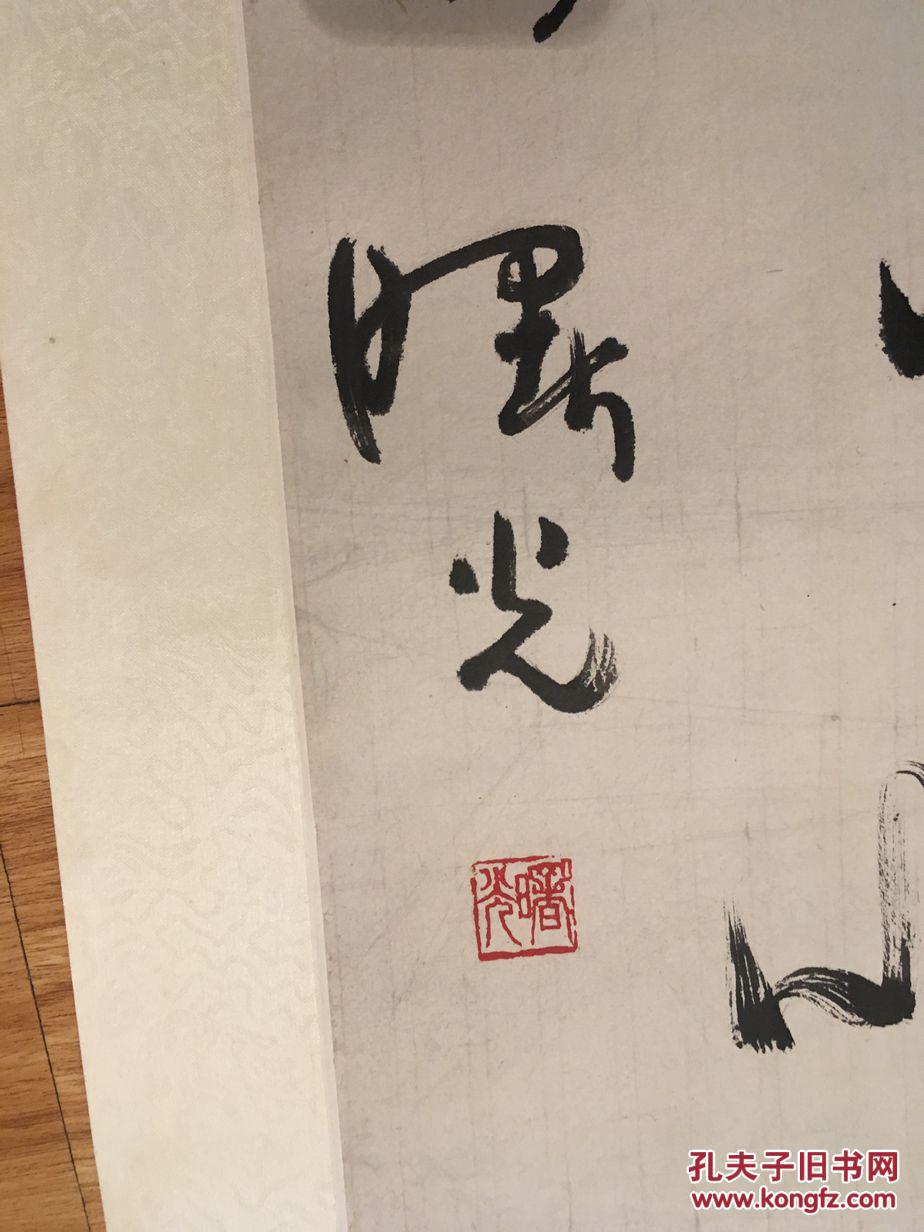 曙光
曙光
孔夫子旧书网
www.kongfz.com